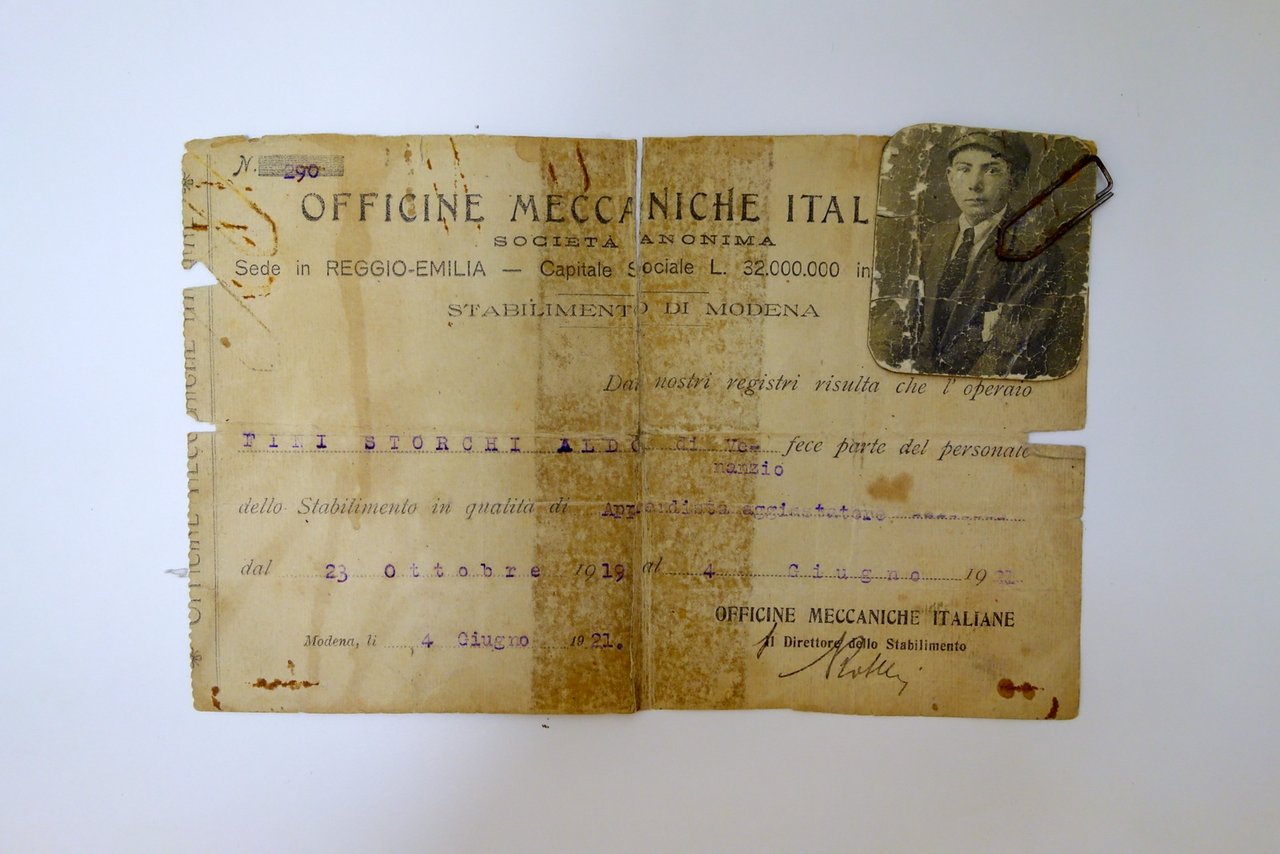 N. 290
OFFICINE MECCANICHE ITAL
SOCIETÀ ANONIMA
Sede in REGGIO-EMILIA — Capitale Sociale L. 32.000.000 in
STABILIMENTO DI MODENA
Dai nostri registri risulta che l'operaio
FINI STORCHI ALDO di Ve= fece parte del personale
nanzio
dello Stabilimento in qualità di Apprendista aggiustatore
dal 23 Ottobre 1919 al 4 Giugno 1921
OFFICINE MECCANICHE ITALIANE
Il Direttore dello Stabilimento
Modena, li 4 Giugno 1921.